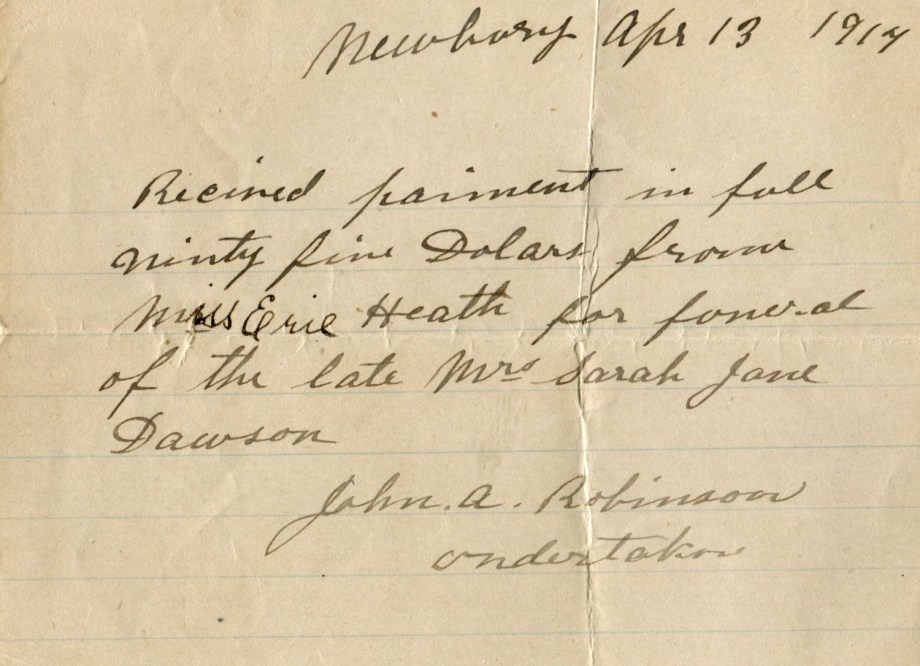 Newbury Apr 13 1917
Recived paiment in full
ninty five Dolars from
Miss Erie Heath for funeral
of the late Mrs Sarah Jane
Dawson
John. A. Robinson
undertaker